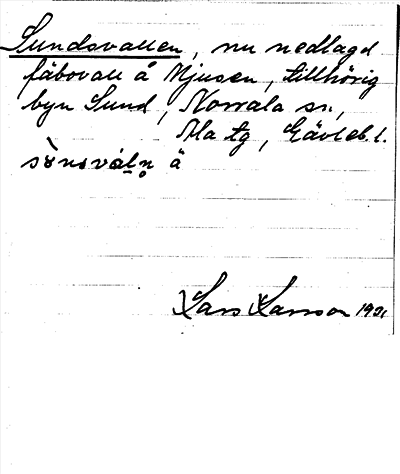 Sundsvallen, nu nedlagd
fäbovall å Njusen, tillhörig
byn Sund, Norrala sn,
Ala tg, Gävleb. l.
sò̤nsvál̥n̥ ä
Lars Larsson 1931